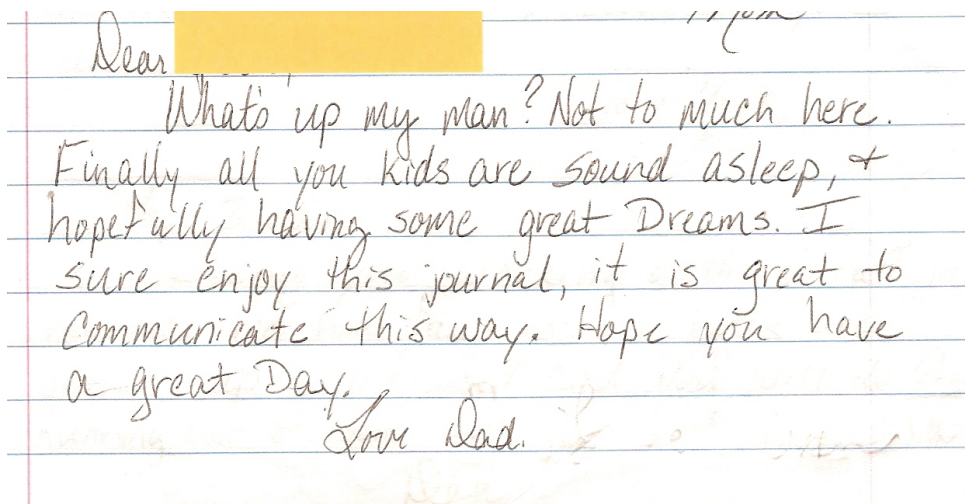 Mom
Dear
What's up my man? Not to much here.
Finally all you kids are sound asleep, +
hopefully having some great Dreams. I
sure enjoy this journal, it is great to
Communicate this way. Hope you have
a great Day.
Love Dad.